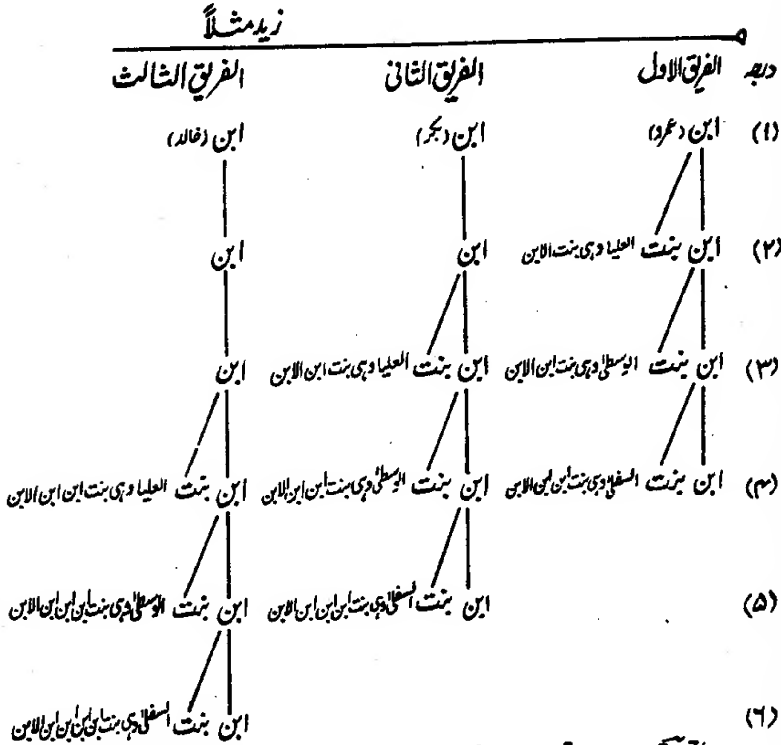 زید مثلاً
درجہ الفریق الاول الفریق الثانی الفریق الثالث
(۱) ابن (عمرو) ابن (بکر) ابن (خالد)
(۲) ابن بنت العلیا وہی بنت الابن ابن ابن
(۳) ابن بنت الوسطیٰ وہی بنت ابن الابن ابن بنت العلیا وہی بنت ابن الابن ابن
(۴) ابن بنت السفلیٰ وہی بنت ابن ابن الابن ابن بنت الوسطیٰ وہی بنت ابن ابن الابن ابن بنت العلیا وہی بنت ابن ابن الابن
(۵) ابن بنت السفلیٰ وہی بنت ابن ابن ابن الابن ابن بنت الوسطیٰ وہی بنت ابن ابن ابن الابن
(۶) ابن بنت السفلیٰ وہی بنت ابن ابن ابن ابن الابن